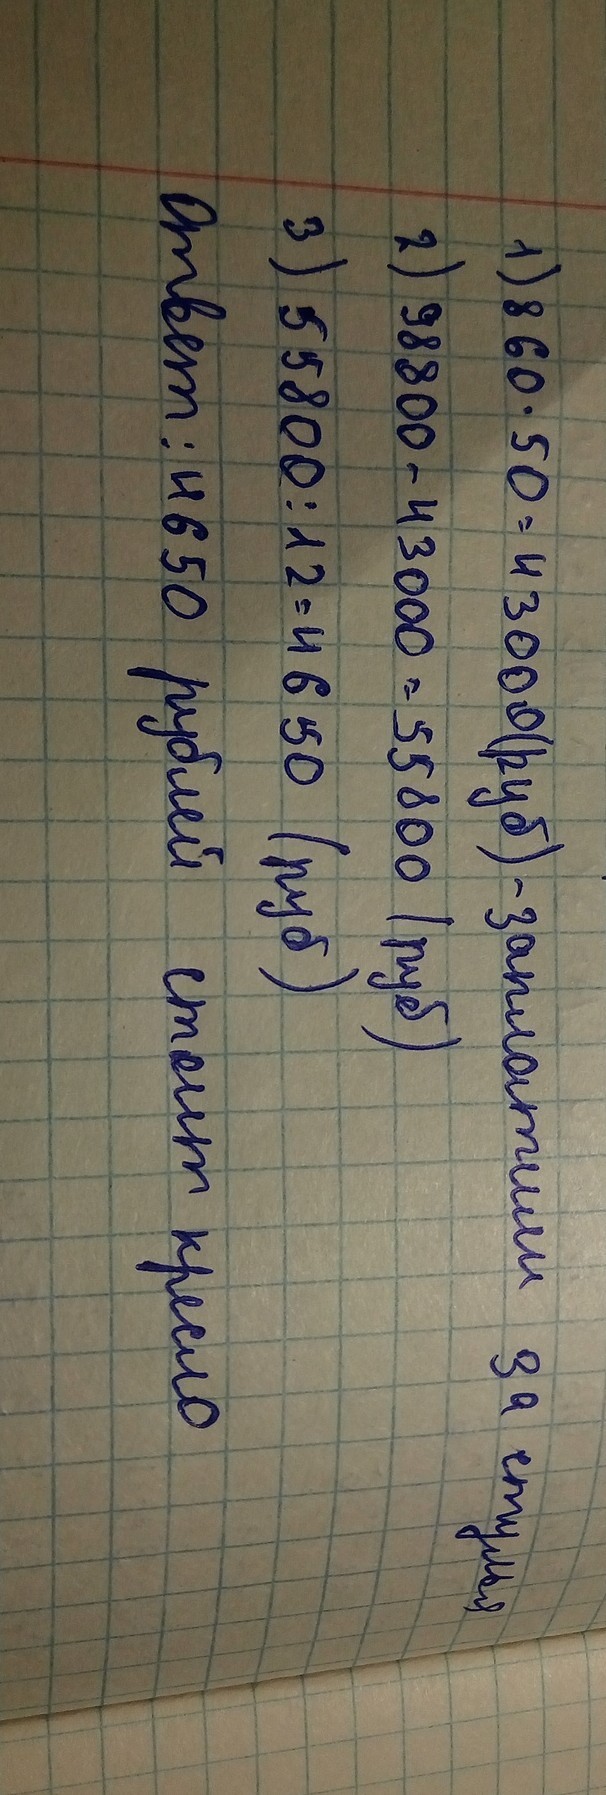 1) 860·50=43000(руб)-заплатили за стулья
2) 98800-43000=55800(руб)
3) 55800:12=4650 (руб)
Ответ: 4650 рублей стоит кресло